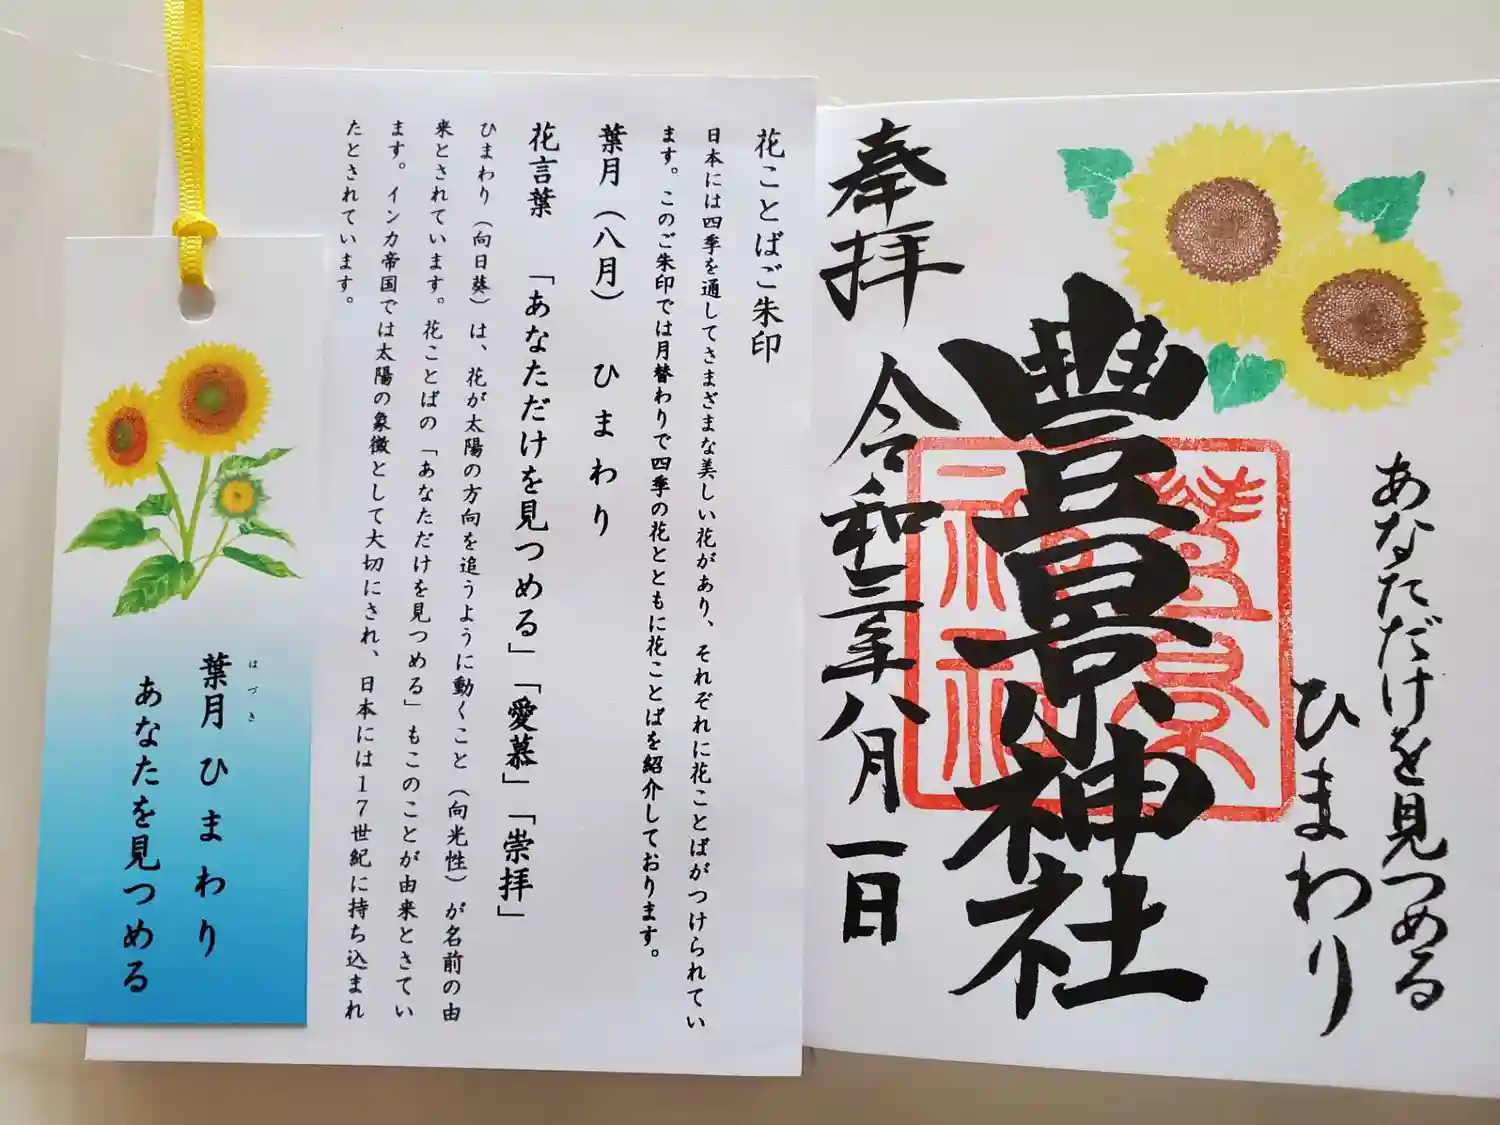 あなただけを見つめる
ひまわり
豊景神社
奉拝 令和三年八月一日
豊景
神社
花ことばご朱印
日本には四季を通してさまざまな美しい花があり、それぞれに花ことばがつけられてい
ます。このご朱印では月替わりで四季の花とともに花ことばを紹介しております。
葉月（八月） ひまわり
花言葉 「あなただけを見つめる」「愛慕」「崇拝」
ひまわり（向日葵）は、花が太陽の方向を追うように動くこと（向光性）が名前の由
来とされています。花ことばの「あなただけを見つめる」もこのことが由来とさてい
ます。インカ帝国では太陽の象徴として大切にされ、日本には１７世紀に持ち込まれ
たとされています。
はづき
葉月 ひまわり
あなたを見つめる